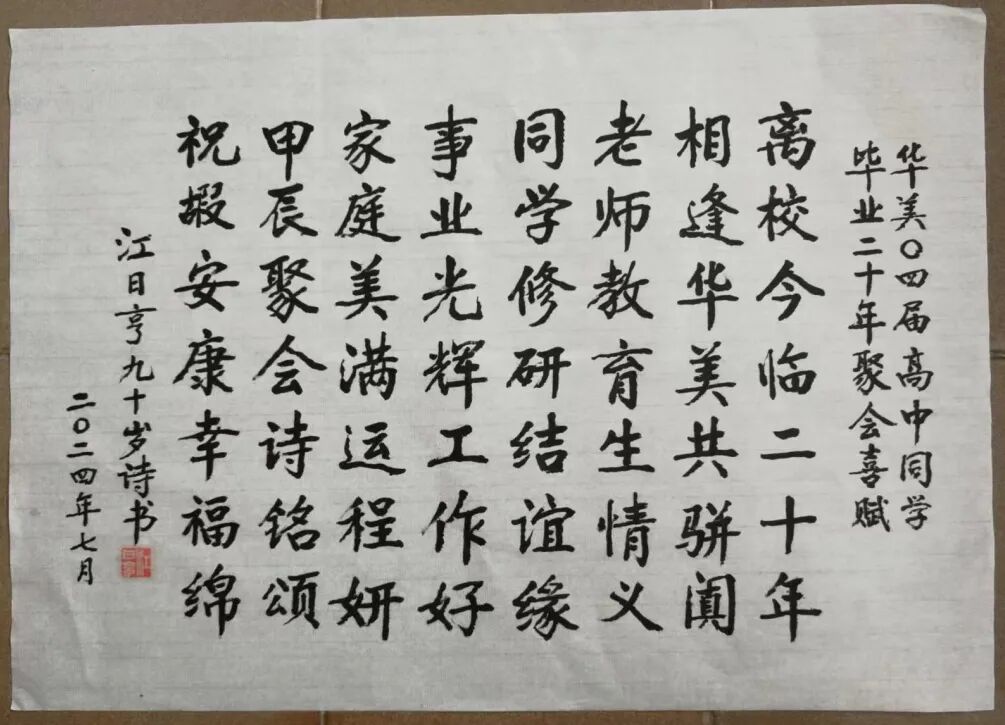 华美〇四届高中同学
毕业二十年聚会喜赋
离校今临二十年
相逢华美共骈阗
老师教育生情义
同学修研结谊缘
事业光辉工作好
家庭美满运程妍
甲辰聚会诗铭颂
祝嘏安康幸福绵
江日亨九十岁诗书
二〇二四年七月